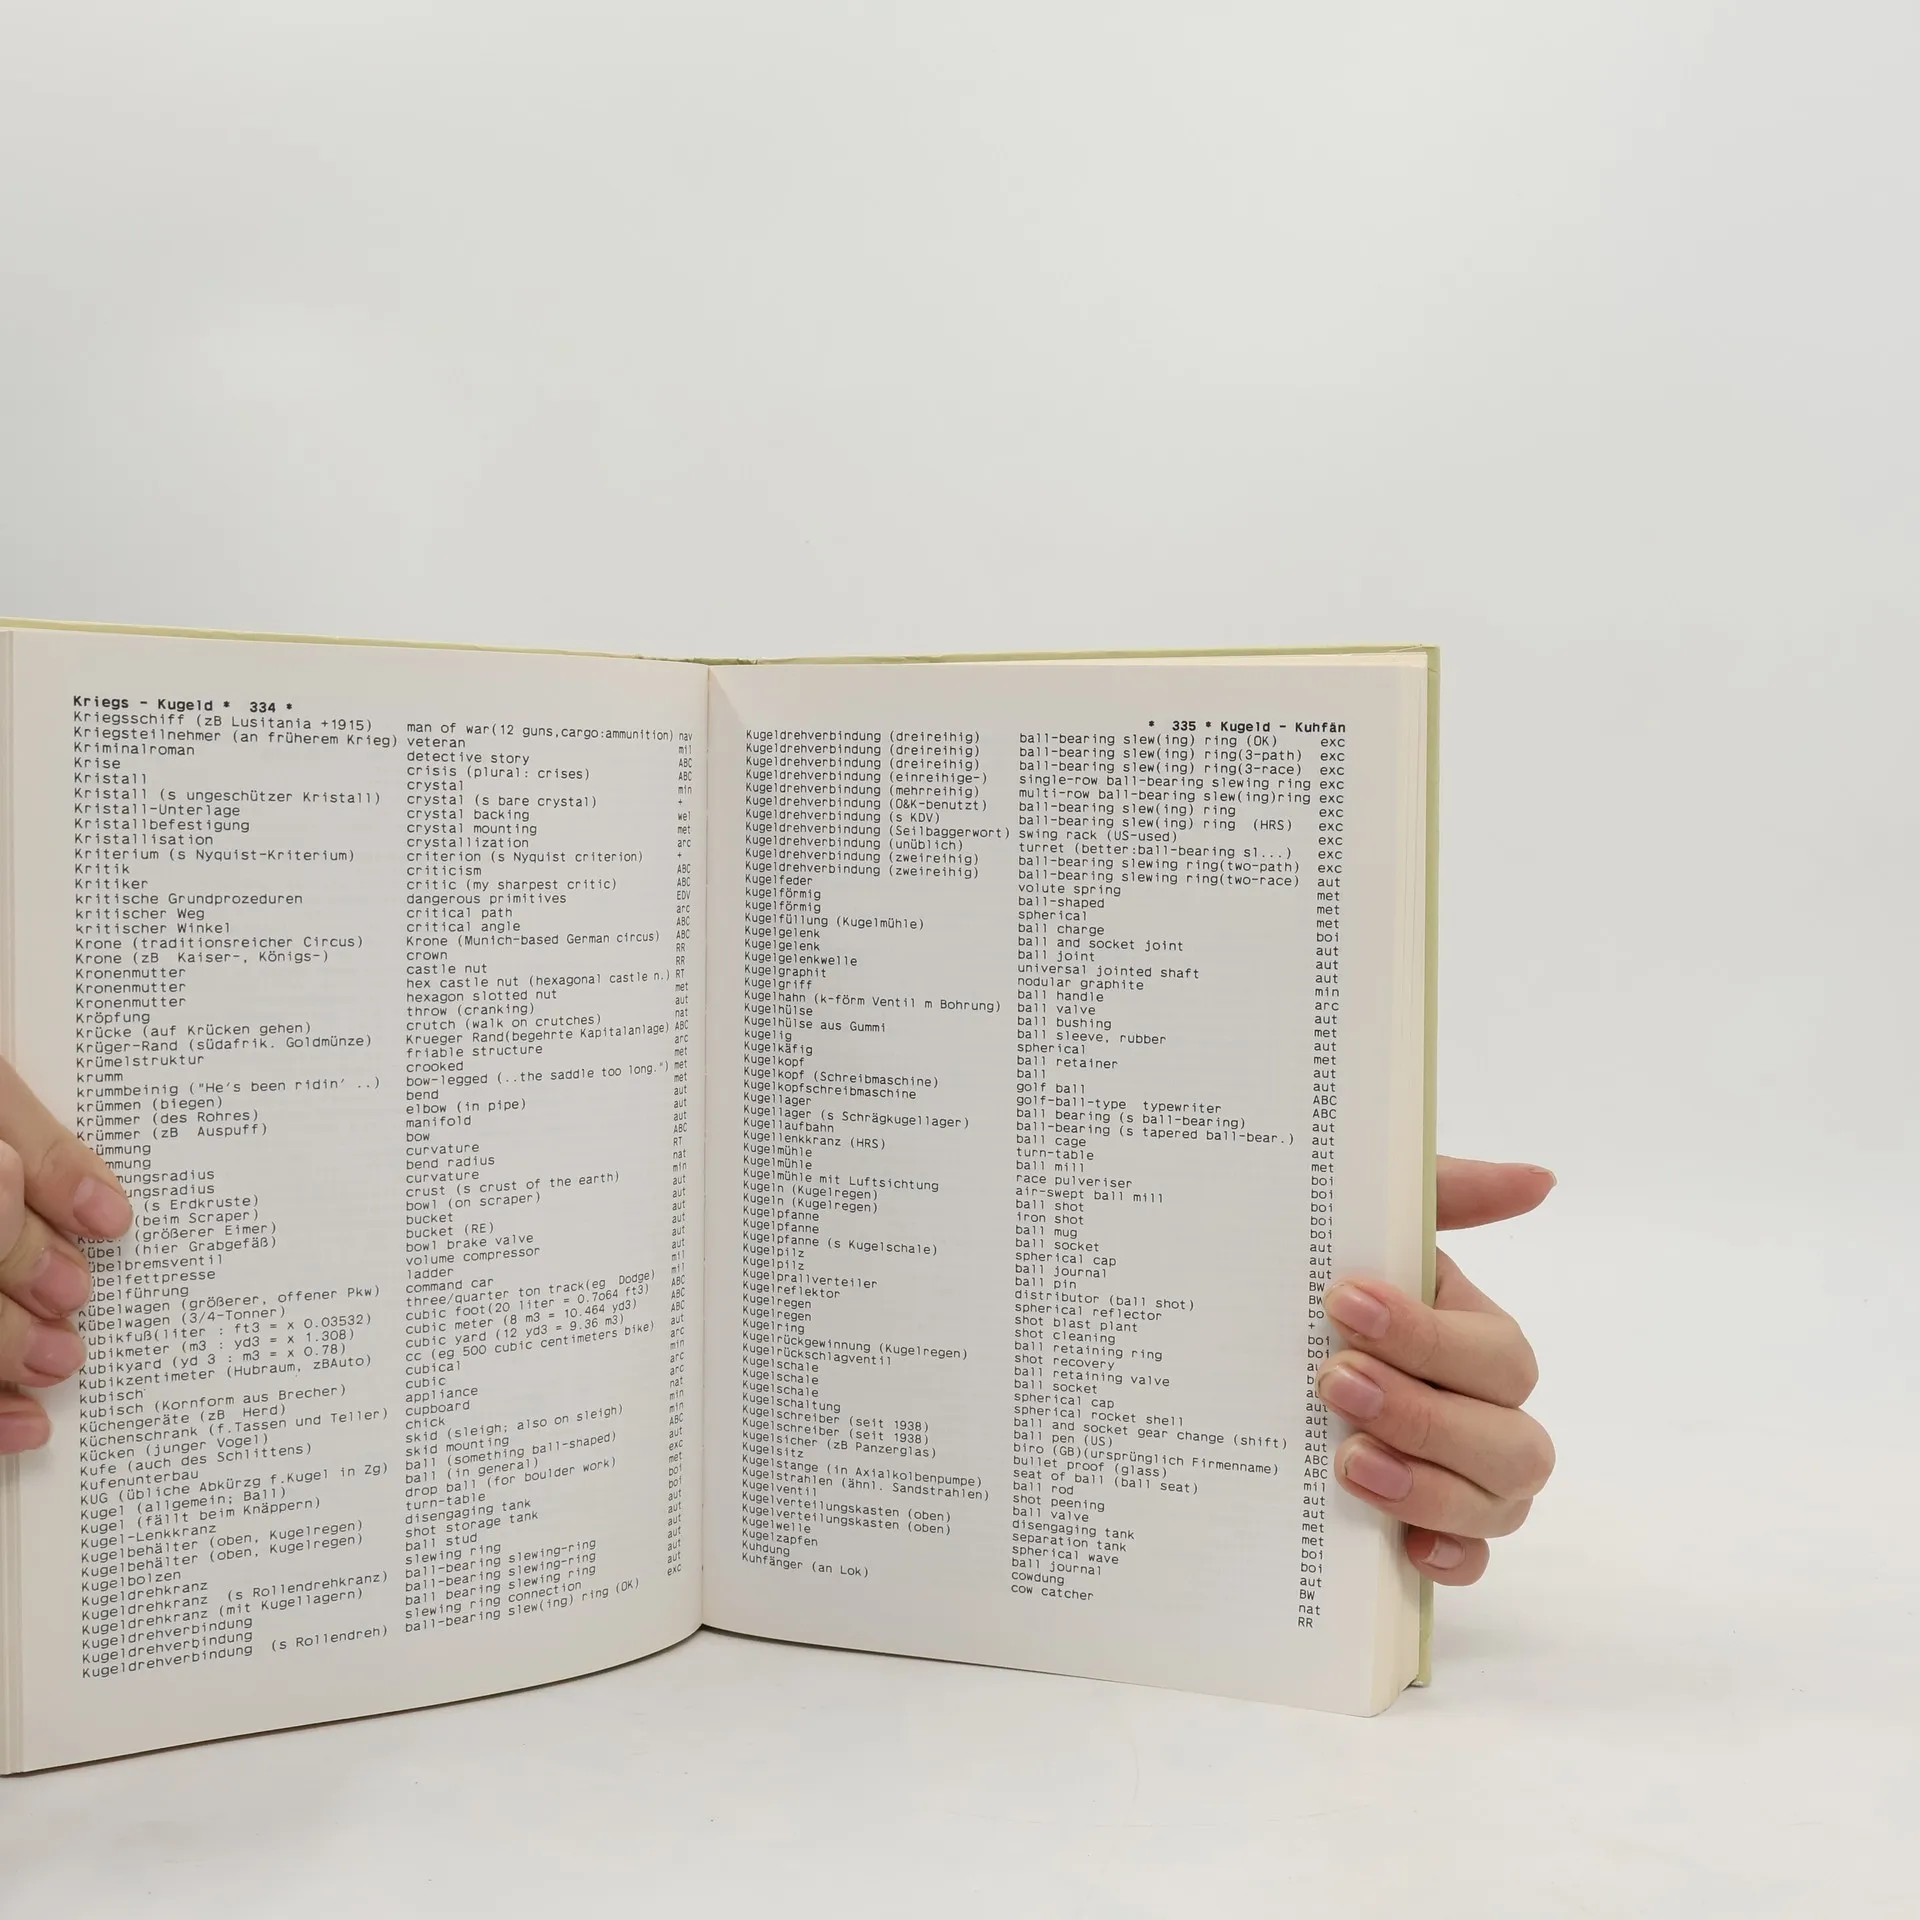 Kriegs - Kugeld * 334 *
Kriegsschiff (zB Lusitania +1915) man of war(12 guns,cargo:ammunition) nav
Kriegsteilnehmer (an früherem Krieg) veteran mil
Kriminalroman detective story ABC
Krise crisis (plural: crises) ABC
Kristall crystal min
Kristall (s ungeschützer Kristall) crystal (s bare crystal) +
Kristall-Unterlage crystal backing wel
Kristallbefestigung crystal mounting met
Kristallisation crystallization arc
Kriterium (s Nyquist-Kriterium) criterion (s Nyquist criterion) +
Kritik criticism ABC
Kritiker critic (my sharpest critic) ABC
kritische Grundprozeduren dangerous primitives EDV
kritischer Weg critical path arc
kritischer Winkel critical angle ABC
Krone (traditionsreicher Circus) Krone (Munich-based German circus) ABC
Krone (zB Kaiser-, Königs-) crown RR
Kronenmutter castle nut RR
Kronenmutter hex castle nut (hexagonal castle n.) RT
Kronenmutter hexagon slotted nut met
Kröpfung throw (cranking) aut
Krücke (auf Krücken gehen) crutch (walk on crutches) nat
Krüger-Rand (südafrik. Goldmünze) Krueger Rand(begehrte Kapitalanlage) ABC
Krümelstruktur friable structure arc
krumm crooked met
krummbeinig ("He's been ridin' ..) bow-legged (..the saddle too long.") met
krümmen (biegen) bend met
Krümmer (des Rohres) elbow (in pipe) aut
Krümmer (zB Auspuff) manifold aut
ümmung bow aut
mmung curvature ABC
mungsradius bend radius RT
ungsradius curvature nat
(s Erdkruste) crust (s crust of the earth) min
(beim Scraper) bowl (on scraper) aut
(größerer Eimer) bucket aut
übel (hier Grabgefäß) bucket (RE) aut
übelbremsventil bowl brake valve aut
übelfettpresse volume compressor aut
übelführung ladder aut
Kübelwagen (größerer, offener Pkw) command car mil
Kübelwagen (3/4-Tonner) three/quarter ton track(eg Dodge) mil
ubikfuß(liter : ft3 = x 0.03532) cubic foot(20 liter = 0.7064 ft3) ABC
ubikmeter (m3 : yd3 = x 1.308) cubic meter (8 m3 = 10.464 yd3) ABC
Kubikyard (yd 3 : m3 = x 0.78) cubic yard (12 yd3 = 9.36 m3) ABC
Kubikzentimeter (Hubraum, zBAuto) cc (eg 500 cubic centimeters bike) aut
kubisch cubical arc
kubisch (Kornform aus Brecher) cubic min
Küchengeräte (zB Herd) appliance arc
Küchenschrank (f.Tassen und Teller) cupboard arc
Kücken (junger Vogel) chick nat
Kufe (auch des Schlittens) skid (sleigh; also on sleigh) min
Kufenunterbau skid mounting min
KUG (übliche Abkürzg f.Kugel in Zg) ball (something ball-shaped) ABC
Kugel (allgemein; Ball) ball (in general) aut
Kugel (fällt beim Knäppern) drop ball (for boulder work) exc
Kugel-Lenkkranz turn-table met
Kugelbehälter (oben, Kugelregen) disengaging tank boi
Kugelbehälter (oben, Kugelregen) shot storage tank boi
Kugelbolzen ball stud aut
Kugeldrehkranz slewing ring aut
Kugeldrehkranz (s Rollendrehkranz) ball-bearing slewing-ring aut
Kugeldrehkranz (mit Kugellagern) ball-bearing slewing-ring aut
Kugeldrehverbindung ball bearing slewing ring aut
Kugeldrehverbindung slewing ring connection aut
Kugeldrehverbindung (s Rollendreh) ball-bearing slew(ing) ring (OK) exc
* 335 * Kugeld - Kuhfän
Kugeldrehverbindung (dreireihig) ball-bearing slew(ing) ring (OK) exc
Kugeldrehverbindung (dreireihig) ball-bearing slew(ing) ring(3-path) exc
Kugeldrehverbindung (dreireihig) ball-bearing slew(ing) ring(3-race) exc
Kugeldrehverbindung (einreihige-) single-row ball-bearing slewing ring exc
Kugeldrehverbindung (mehrreihig) multi-row ball-bearing slew(ing)ring exc
Kugeldrehverbindung (O&K-benutzt) ball-bearing slew(ing) ring exc
Kugeldrehverbindung (s KDV) ball-bearing slew(ing) ring (HRS) exc
Kugeldrehverbindung (Seilbaggerwort) swing rack (US-used) exc
Kugeldrehverbindung (unüblich) turret (better:ball-bearing sl...) exc
Kugeldrehverbindung (zweireihig) ball-bearing slewing ring(two-path) exc
Kugeldrehverbindung (zweireihig) ball-bearing slewing ring(two-race) aut
Kugelfeder volute spring met
kugelförmig ball-shaped met
kugelförmig spherical met
Kugelfüllung (Kugelmühle) ball charge boi
Kugelgelenk ball and socket joint aut
Kugelgelenk ball joint aut
Kugelgelenkwelle universal jointed shaft aut
Kugelgraphit nodular graphite min
Kugelgriff ball handle arc
Kugelhahn (k-förm Ventil m Bohrung) ball valve aut
Kugelhülse ball bushing met
Kugelhülse aus Gummi ball sleeve, rubber aut
kugelig spherical met
Kugelkäfig ball retainer aut
Kugelkopf ball aut
Kugelkopf (Schreibmaschine) golf ball ABC
Kugelkopfschreibmaschine golf-ball-type typewriter ABC
Kugellager ball bearing (s ball-bearing) aut
Kugellager (s Schrägkugellager) ball-bearing (s tapered ball-bear.) aut
Kugellaufbahn ball cage aut
Kugellenkkranz (HRS) turn-table met
Kugelmühle ball mill boi
Kugelmühle race pulveriser boi
Kugelmühle mit Luftsichtung air-swept ball mill boi
Kugeln (Kugelregen) ball shot boi
Kugeln (Kugelregen) iron shot boi
Kugelpfanne ball mug aut
Kugelpfanne ball socket aut
Kugelpfanne (s Kugelschale) spherical cap aut
Kugelpilz ball journal BW
Kugelpilz ball pin BW
Kugelprallverteiler distributor (ball shot) bo
Kugelreflektor spherical reflector +
Kugelregen shot blast plant boi
Kugelregen shot cleaning boi
Kugelring ball retaining ring au
Kugelrückgewinnung (Kugelregen) shot recovery b
Kugelrückschlagventil ball retaining valve au
Kugelschale ball socket aut
Kugelschale spherical cap aut
Kugelschale spherical rocket shell aut
Kugelschaltung ball and socket gear change (shift) aut
Kugelschreiber (seit 1938) ball pen (US) ABC
Kugelschreiber (seit 1938) biro (GB)(ursprünglich Firmenname) ABC
Kugelsicher (zB Panzerglas) bullet proof (glass) mil
Kugelsitz seat of ball (ball seat) aut
Kugelstange (in Axialkolbenpumpe) ball rod aut
Kugelstrahlen (ähnl. Sandstrahlen) shot peening met
Kugelventil ball valve met
Kugelverteilungskasten (oben) disengaging tank boi
Kugelverteilungskasten (oben) separation tank boi
Kugelwelle spherical wave aut
Kugelzapfen ball journal BW
Kuhdung cowdung nat
Kuhfänger (an Lok) cow catcher RR